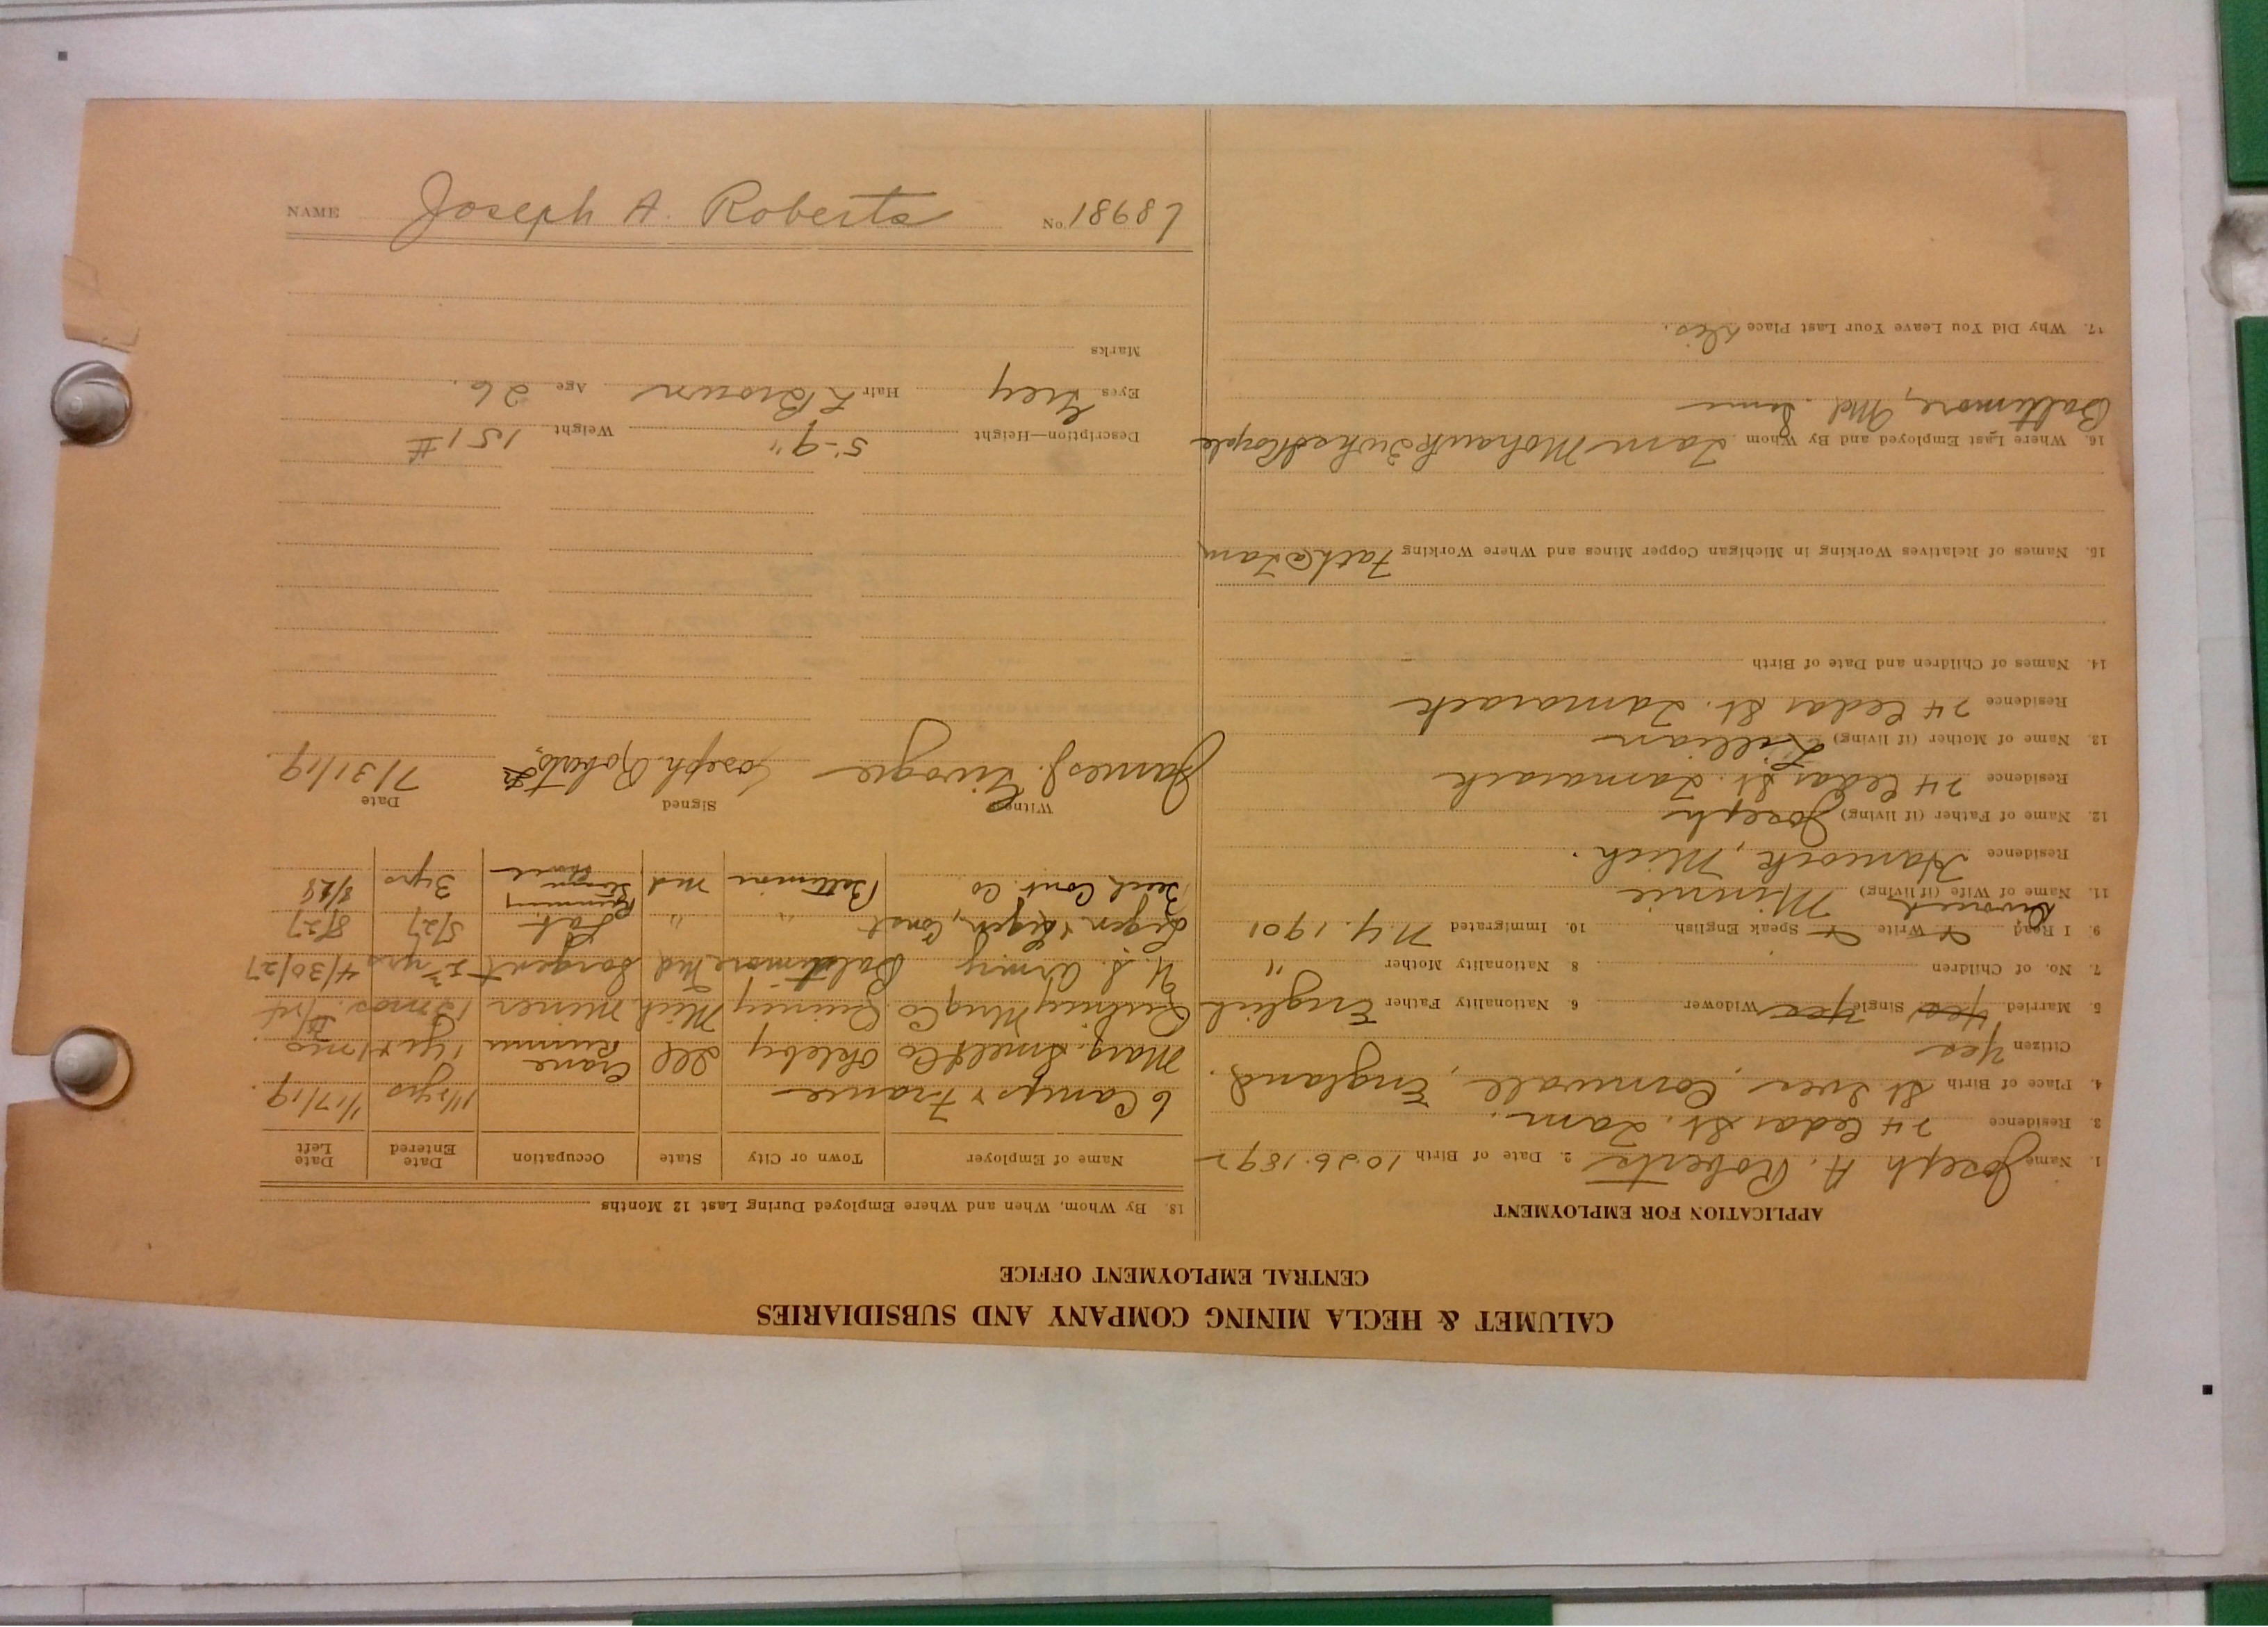 CALUMET & HECLA MINING COMPANY AND SUBSIDIARIES
CENTRAL EMPLOYMENT OFFICE
APPLICATION FOR EMPLOYMENT
1. Name Joseph A. Roberts 2. Date of Birth 10.26.1892
3. Residence 74 Cedar St. Tam.
4. Place of Birth St Ives, Cornwall, England.
Citizen Yes
5. Married Yes Single Yes Widower 6. Nationality Father English
7. No. of Children 8. Nationality Mother "
9. I Read Write Speak English 10. Immigrated N.Y. 1901
Divorced
11. Name of Wife (if living) Minnie
Residence Hancock, Mich.
12. Name of Father (if living) Joseph
Residence 74 Cedar St. Tamarack
13. Name of Mother (if living) Lillian
Residence 74 Cedar St. Tamarack
14. Names of Children and Date of Birth
15. Names of Relatives Working in Michigan Copper Mines and Where Working Fath @ Tam
16. Where Last Employed and By Whom Tam Mohawk
Baltimore, Md.
17. Why Did You Leave Your Last Place
18. By Whom, When and Where Employed During Last 12 Months
Name of Employer Town or City State Occupation Date Entered Date Left
6 Camps & France 1 1/2 yrs 1/17/19.
Smelt Co Ill Crane Runner 1 yr 1 mo
Quincy Mng Co. Quincy Mich Miner 13 mos.
U.S. Army Baltimore Md Sargent 4/30/27
Const " " Lab. 5/27 8/27
Cont. Co Baltimore Md Running Steam Shovel 3 yrs
Witness Signed Date
James J. Joseph Roberts Jr 7/31/19.
Description—Height 5'-9" Weight 151 #
Eyes Grey Hair L Brown Age 26.
Marks
NAME Joseph A. Roberts No. 18981